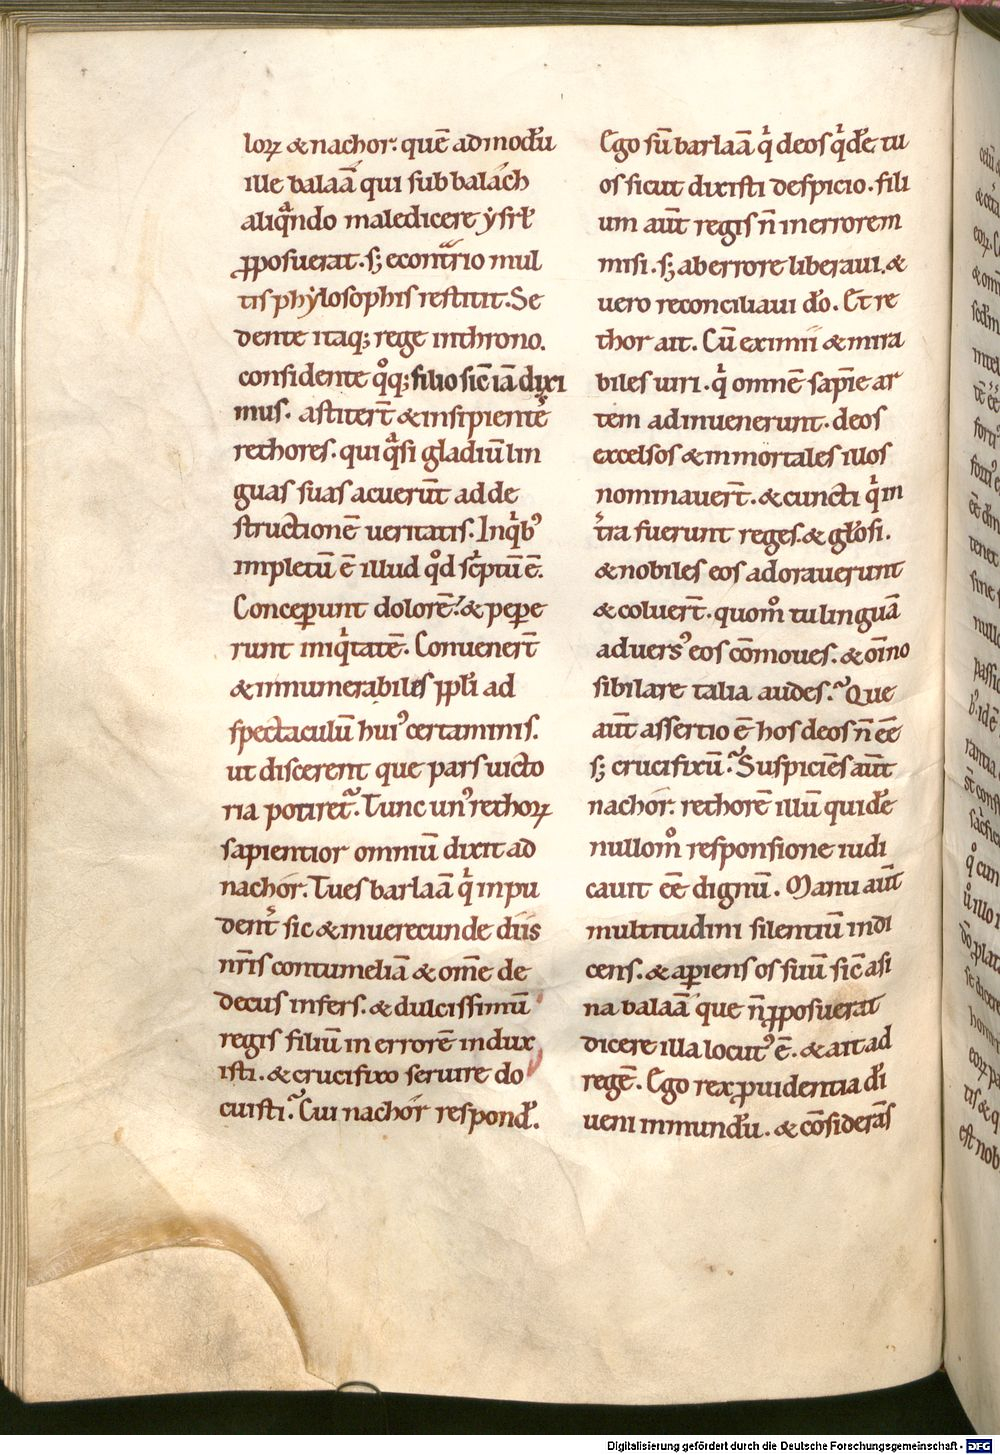 loꝝ & nachor. quē admodū
ille balaā qui sub balach
aliqͣndo maledicere ẏsrł
ꝓposuerat. s; econtͣrio mul
tis phẏlosophis restitit. Se
dente itaq; rege inthrono.
confidente qͦq; filio sic̄ iā dixi
mus. astiter̄t & insipientēs
rethores. qui qͣsi gladiū lin
guas suas acuerūt ad de
structionē ueritatis. Inqͥbꝰ
impletū ē illud qͦd sc̄ptū ē.
Conceꝑunt dolorē. & peꝑe
runt iniqͥtatē. Conuener̄t
& innumerabiles ppłi ad
spectaculū huiꝰ certaminis.
ut discerent que pars uicto
ria potiretᷣ. Tunc unꝰ rethoꝝ
sapientior omniū dixit ad
nachor. Tu es barlaā qͥ inpu
dent᷒ sic & inuerecunde diis
nr̄is contumeliā & om̄e de
decus infers. & dulcissimū
regis filiū in errorē indux
isti. & crucifixo seruire do
cuisti. Cui nachor respond̄.
Ego sū barlaā qͥ deos qͥdē tu
os sicut dixisti despicio. fili
um aūt regis n̄ in errorem
misi. s; ab errore liberaui. &
uero reconciliaui dō. Et re
thor ait. Cū eximii & mira
biles uiri. qͥ omnē sapīe ar
tem adinuenerunt. deos
excelsos & inmortales illos
nominauer̄t. & cuncti qͥ in
tͥra fuerunt reges. & głosi.
& nobiles eos adorauerunt
& coluer̄t. quomͦ tu linguā
aduersꝰ eos cōmoues. & oīno
sibilare talia audes. Que
aūt assertio ē hos deos n̄ eē
s; crucifixū. Suspiciēs aūt
nachor. rethorē illū quidē
nullomͦ responsione iudi
cauit eē dignū. Manu aūt
multitudini silentiū indi
cens. & aꝑiens os suū sic̄ asi
na balaā que n̄ ꝓposuerat
dicere illa locutꝰ ē. & ait ad
regē. Ego rex ꝓuidentia dī
ueni in mundū. & cōsiderās